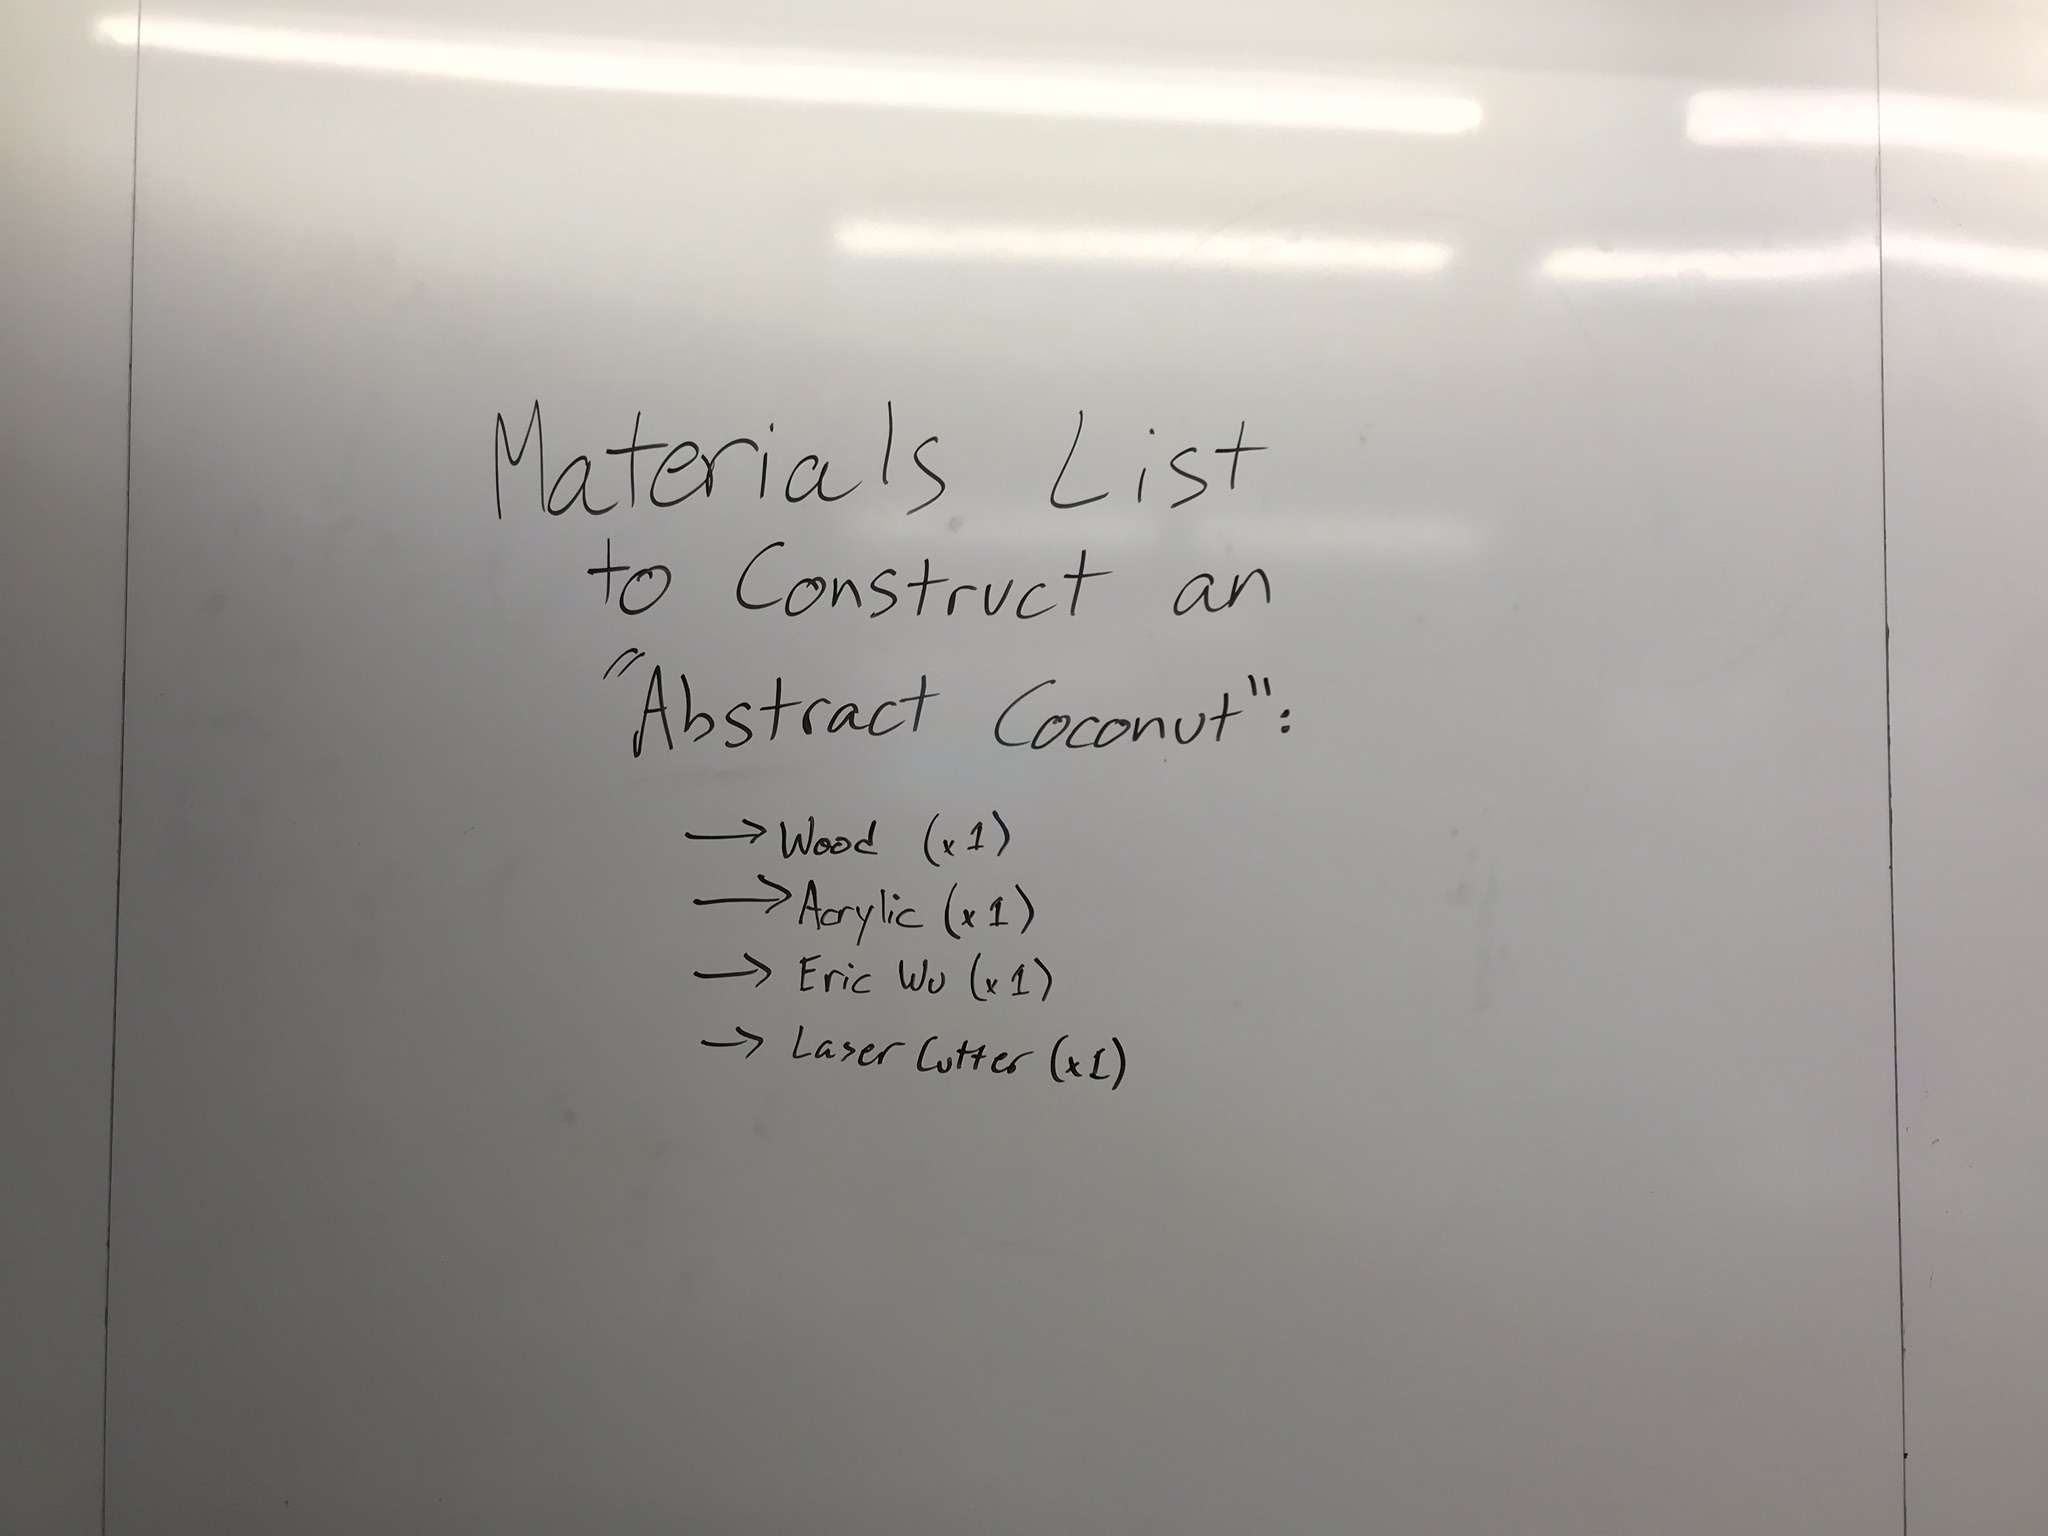 Materials List
to Construct an
"Abstract Coconut":
→ Wood (x1)
→ Acrylic (x1)
→ Eric Wu (x1)
→ Laser Cutter (x1)